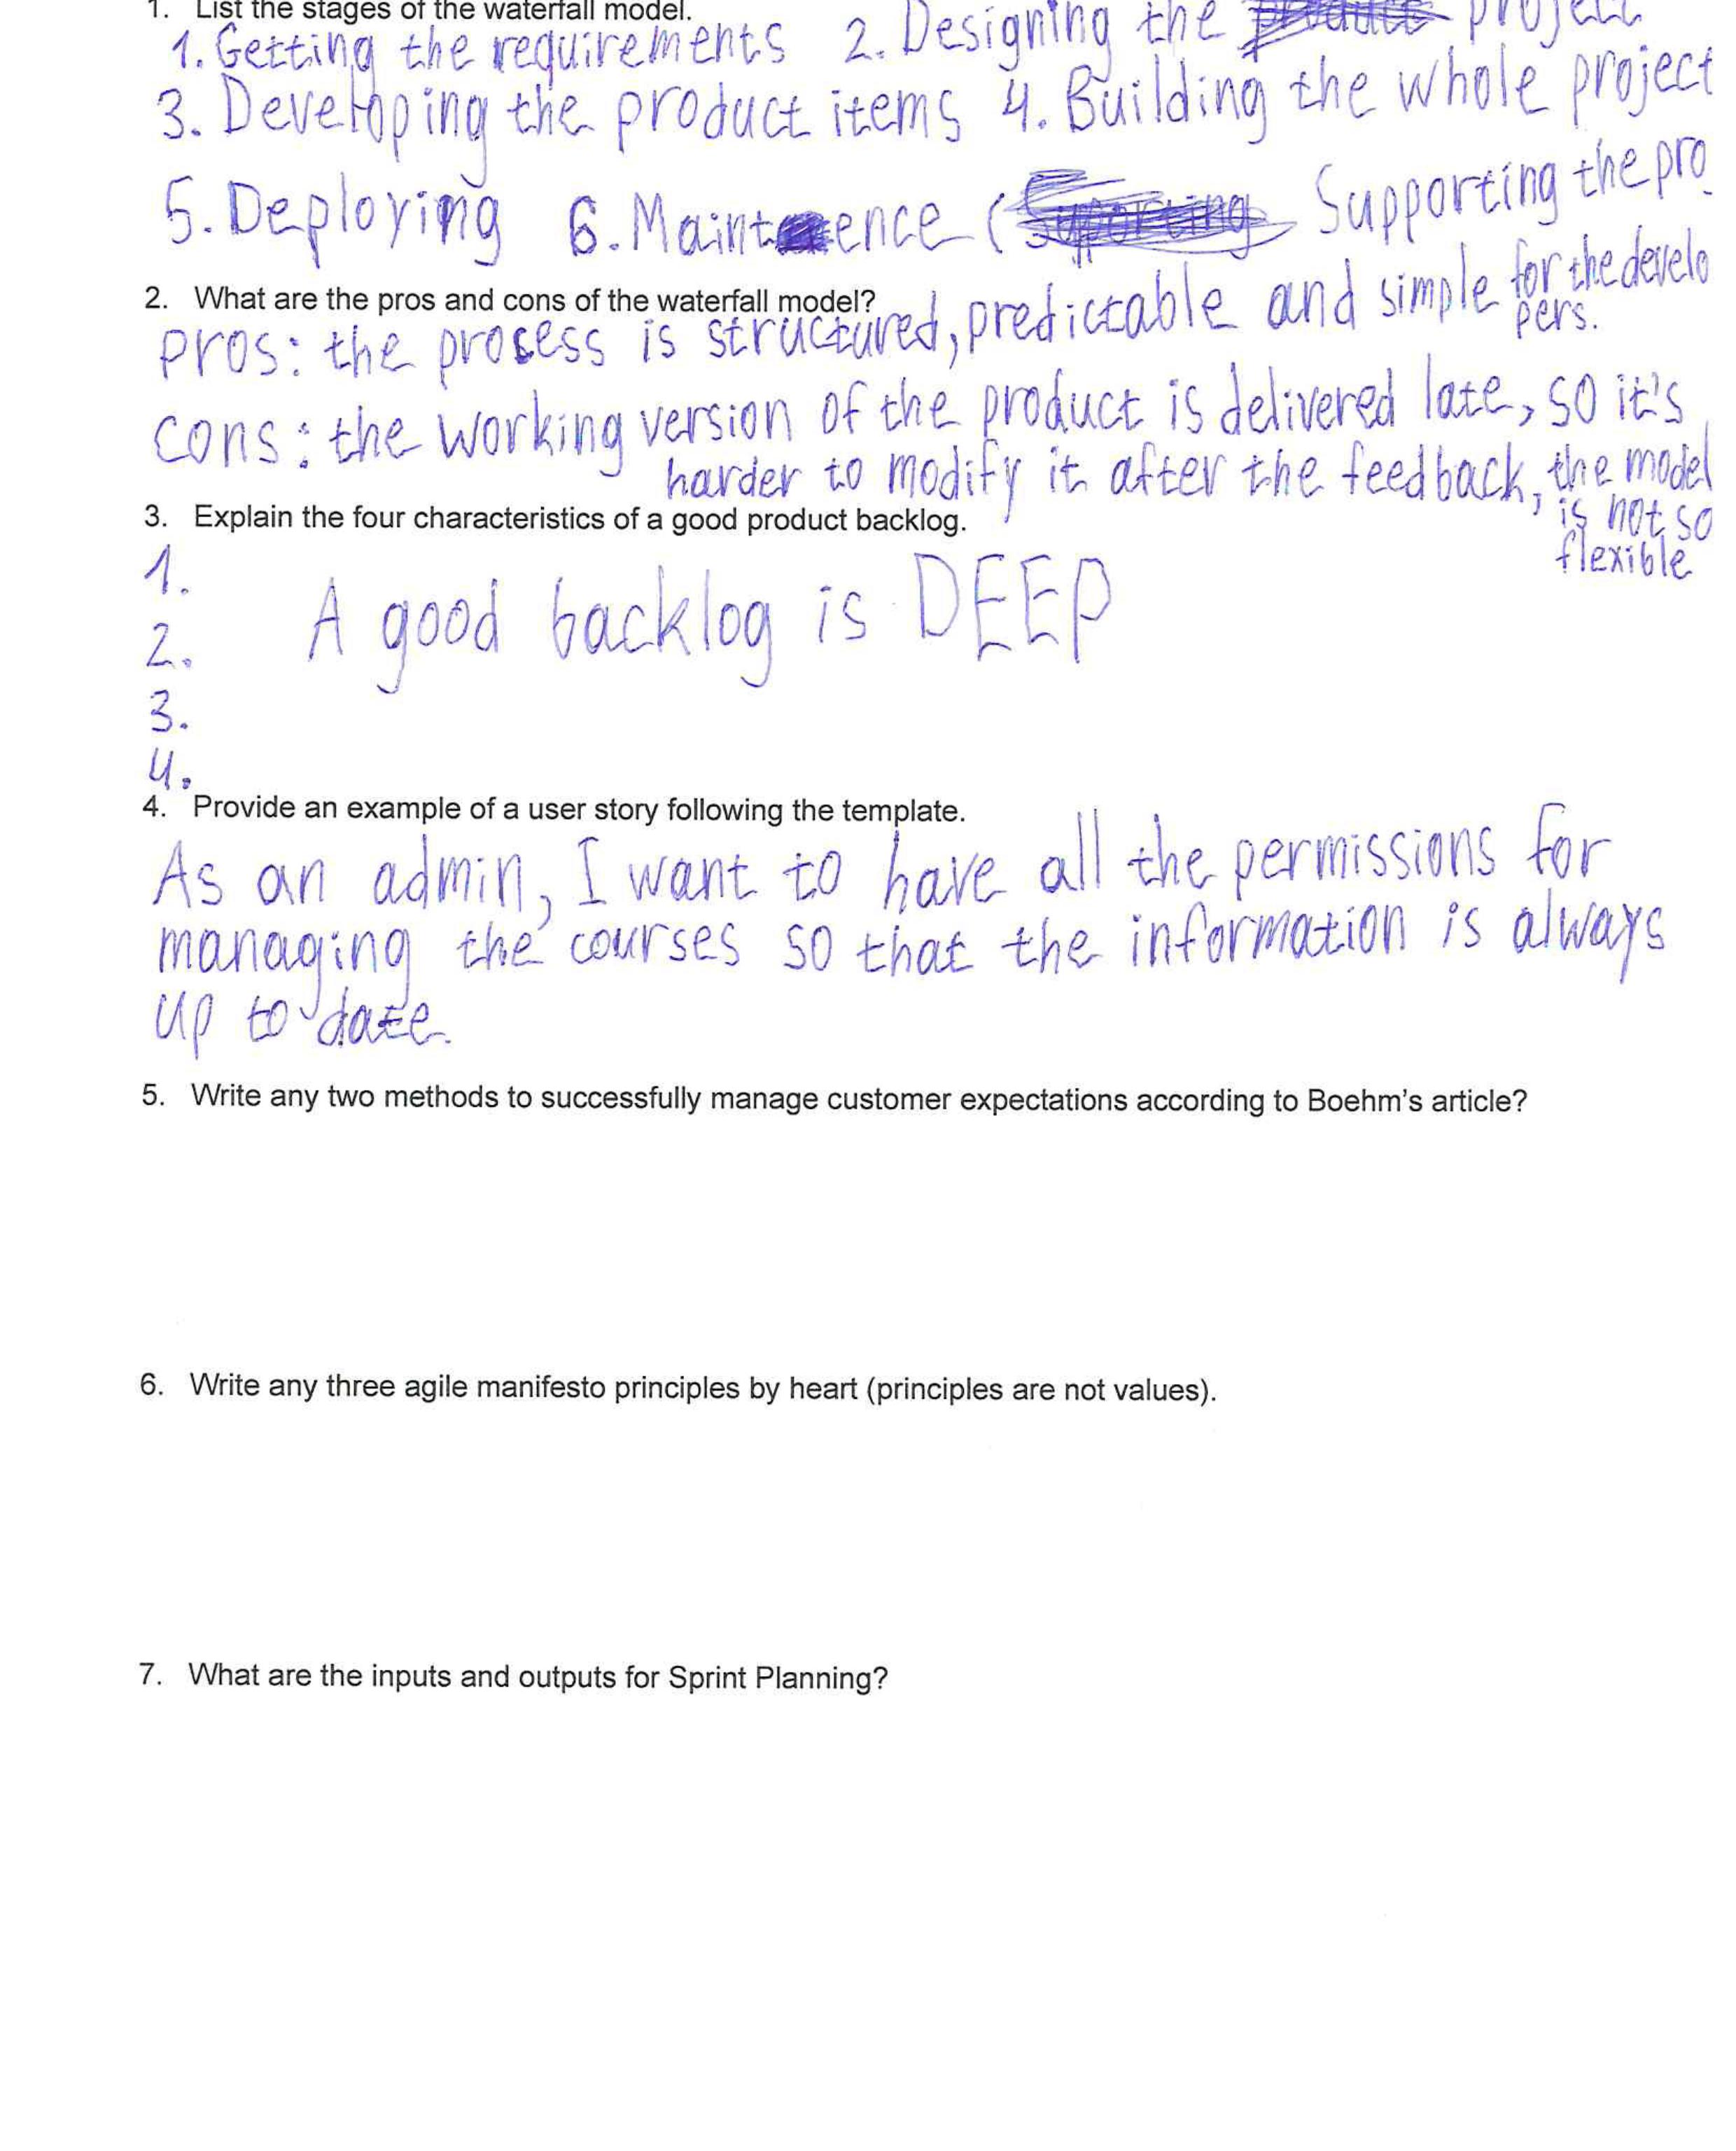 1. List the stages of the waterfall model.
1. Getting the requirements 2. Designing the product project
3. Developing the product items 4. Building the whole project
5. Deploying 6. Maintenence ( Supporting the pro
2. What are the pros and cons of the waterfall model?
pros: the process is structured, predictable and simple for the develo
pers.
cons: the working version of the product is delivered late, so it's
harder to modify it after the feedback, the model
is not so
flexible
3. Explain the four characteristics of a good product backlog.
1.
2. A good backlog is DEEP
3.
4.
4. Provide an example of a user story following the template.
As an admin, I want to have all the permissions for
managing the courses so that the information is always
up to date.
5. Write any two methods to successfully manage customer expectations according to Boehm's article?
6. Write any three agile manifesto principles by heart (principles are not values).
7. What are the inputs and outputs for Sprint Planning?